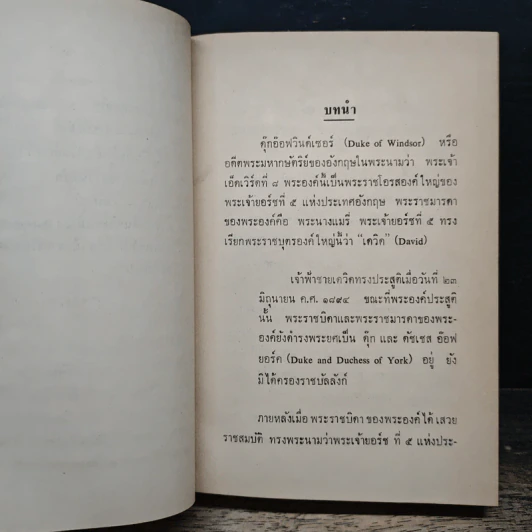 บทนำ
ดุ๊กอ๊อฟวินด์เซอร์ (Duke of Windsor) หรือ
อดีตพระมหากษัตริย์ของอังกฤษในพระนามว่า พระเจ้า
เอ็ดเวิร์ดที่ ๘ พระองค์นี้เป็นพระราชโอรสองค์ใหญ่ของ
พระเจ้ายอร์ชที่ ๕ แห่งประเทศอังกฤษ พระราชมารดา
ของพระองค์คือ พระนางแมรี่ พระเจ้ายอร์ชที่ ๕ ทรง
เรียกพระราชบุตรองค์ใหญ่นี้ว่า "เดวิด" (David)
เจ้าฟ้าชายเดวิดทรงประสูติเมื่อวันที่ ๒๓
มิถุนายน ค.ศ. ๑๘๙๔ ขณะที่พระองค์ประสูติ
นั้น พระราชบิดาและพระราชมารดาของพระ-
องค์ยังดำรงพระยศเป็น ดุ๊ก และ ดัชเชส อ๊อฟ
ยอร์ค (Duke and Duchess of York) อยู่ ยัง
มิได้ครองราชบัลลังก์
ภายหลังเมื่อ พระราชบิดา ของพระองค์ได้ เสวย
ราชสมบัติ ทรงพระนามว่าพระเจ้ายอร์ช ที่ ๕ แห่งประ-